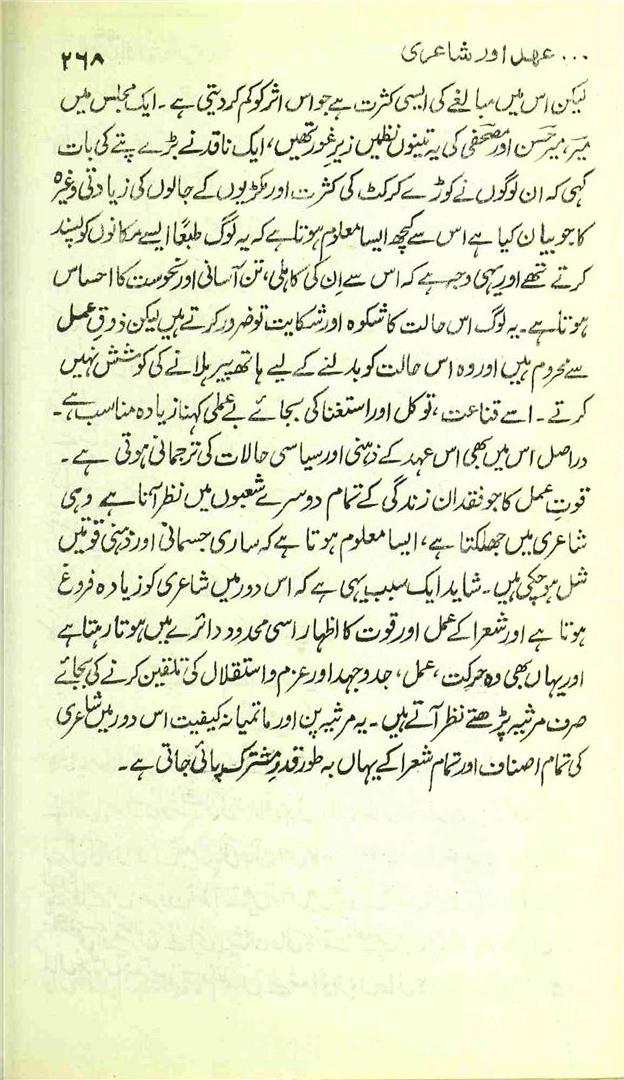 ... عہد اور شاعری ۲۶۸
لیکن اس میں مبالغے کی ایسی کثرت ہے جو اس اثر کو کم کر دیتی ہے۔ ایک مجلس میں
میر، میر حسن اور مصحفی کی یہ تینوں نظمیں زیر غور تھیں، ایک ناقد نے بڑے پتے کی بات
کہی کہ ان لوگوں نے کوڑے کرکٹ کی کثرت اور مکڑیوں کے جالوں کی زیادتی وغیرہ
کا جو بیان کیا ہے اس سے کچھ ایسا معلوم ہوتا ہے کہ یہ لوگ طبعاً ایسے مکانوں کو پسند
کرتے تھے اور یہی وجہ ہے کہ اس سے اِن کی کاہلی، تن آسانی اور نحوست کا احساس
ہوتا ہے۔ یہ لوگ اس حالت کا شکوہ اور شکایت تو ضرور کرتے ہیں لیکن ذوقِ عمل
سے محروم ہیں اور وہ اس حالت کو بدلنے کے لیے ہاتھ پیر ہلانے کی کوشش نہیں
کرتے۔ اسے قناعت، توکل اور استغنا کی بجائے بے عملی کہنا زیادہ مناسب ہے۔
دراصل اس میں بھی اس عہد کے ذہنی اور سیاسی حالات کی ترجمانی ہوتی ہے۔
قوتِ عمل کا جو فقدان زندگی کے تمام دوسرے شعبوں میں نظر آتا ہے وہی
شاعری میں جھلکتا ہے، ایسا معلوم ہوتا ہے کہ ساری جسمانی اور ذہنی قوتیں
شل ہو چکی ہیں۔ شاید ایک سبب یہی ہے کہ اس دور میں شاعری کو زیادہ فروغ
ہوتا ہے اور شعرا کے عمل اور قوت کا اظہار اسی محدود دائرے میں ہوتا رہتا ہے
اور یہاں بھی وہ حرکت، عمل، جدوجہد اور عزم و استقلال کی تلقین کرنے کی بجائے
صرف مرثیہ پڑھتے نظر آتے ہیں۔ یہ مرثیہ پن اور ماتمیانہ کیفیت اس دور میں شاعری
کی تمام اصناف اور تمام شعرا کے یہاں بہ طور قدرِ مشترک پائی جاتی ہے۔